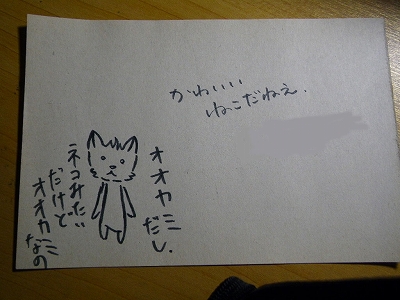 かわいい
ねこだねえ.
オオカミだし.
ネコみたい
だけど
オオカミなの